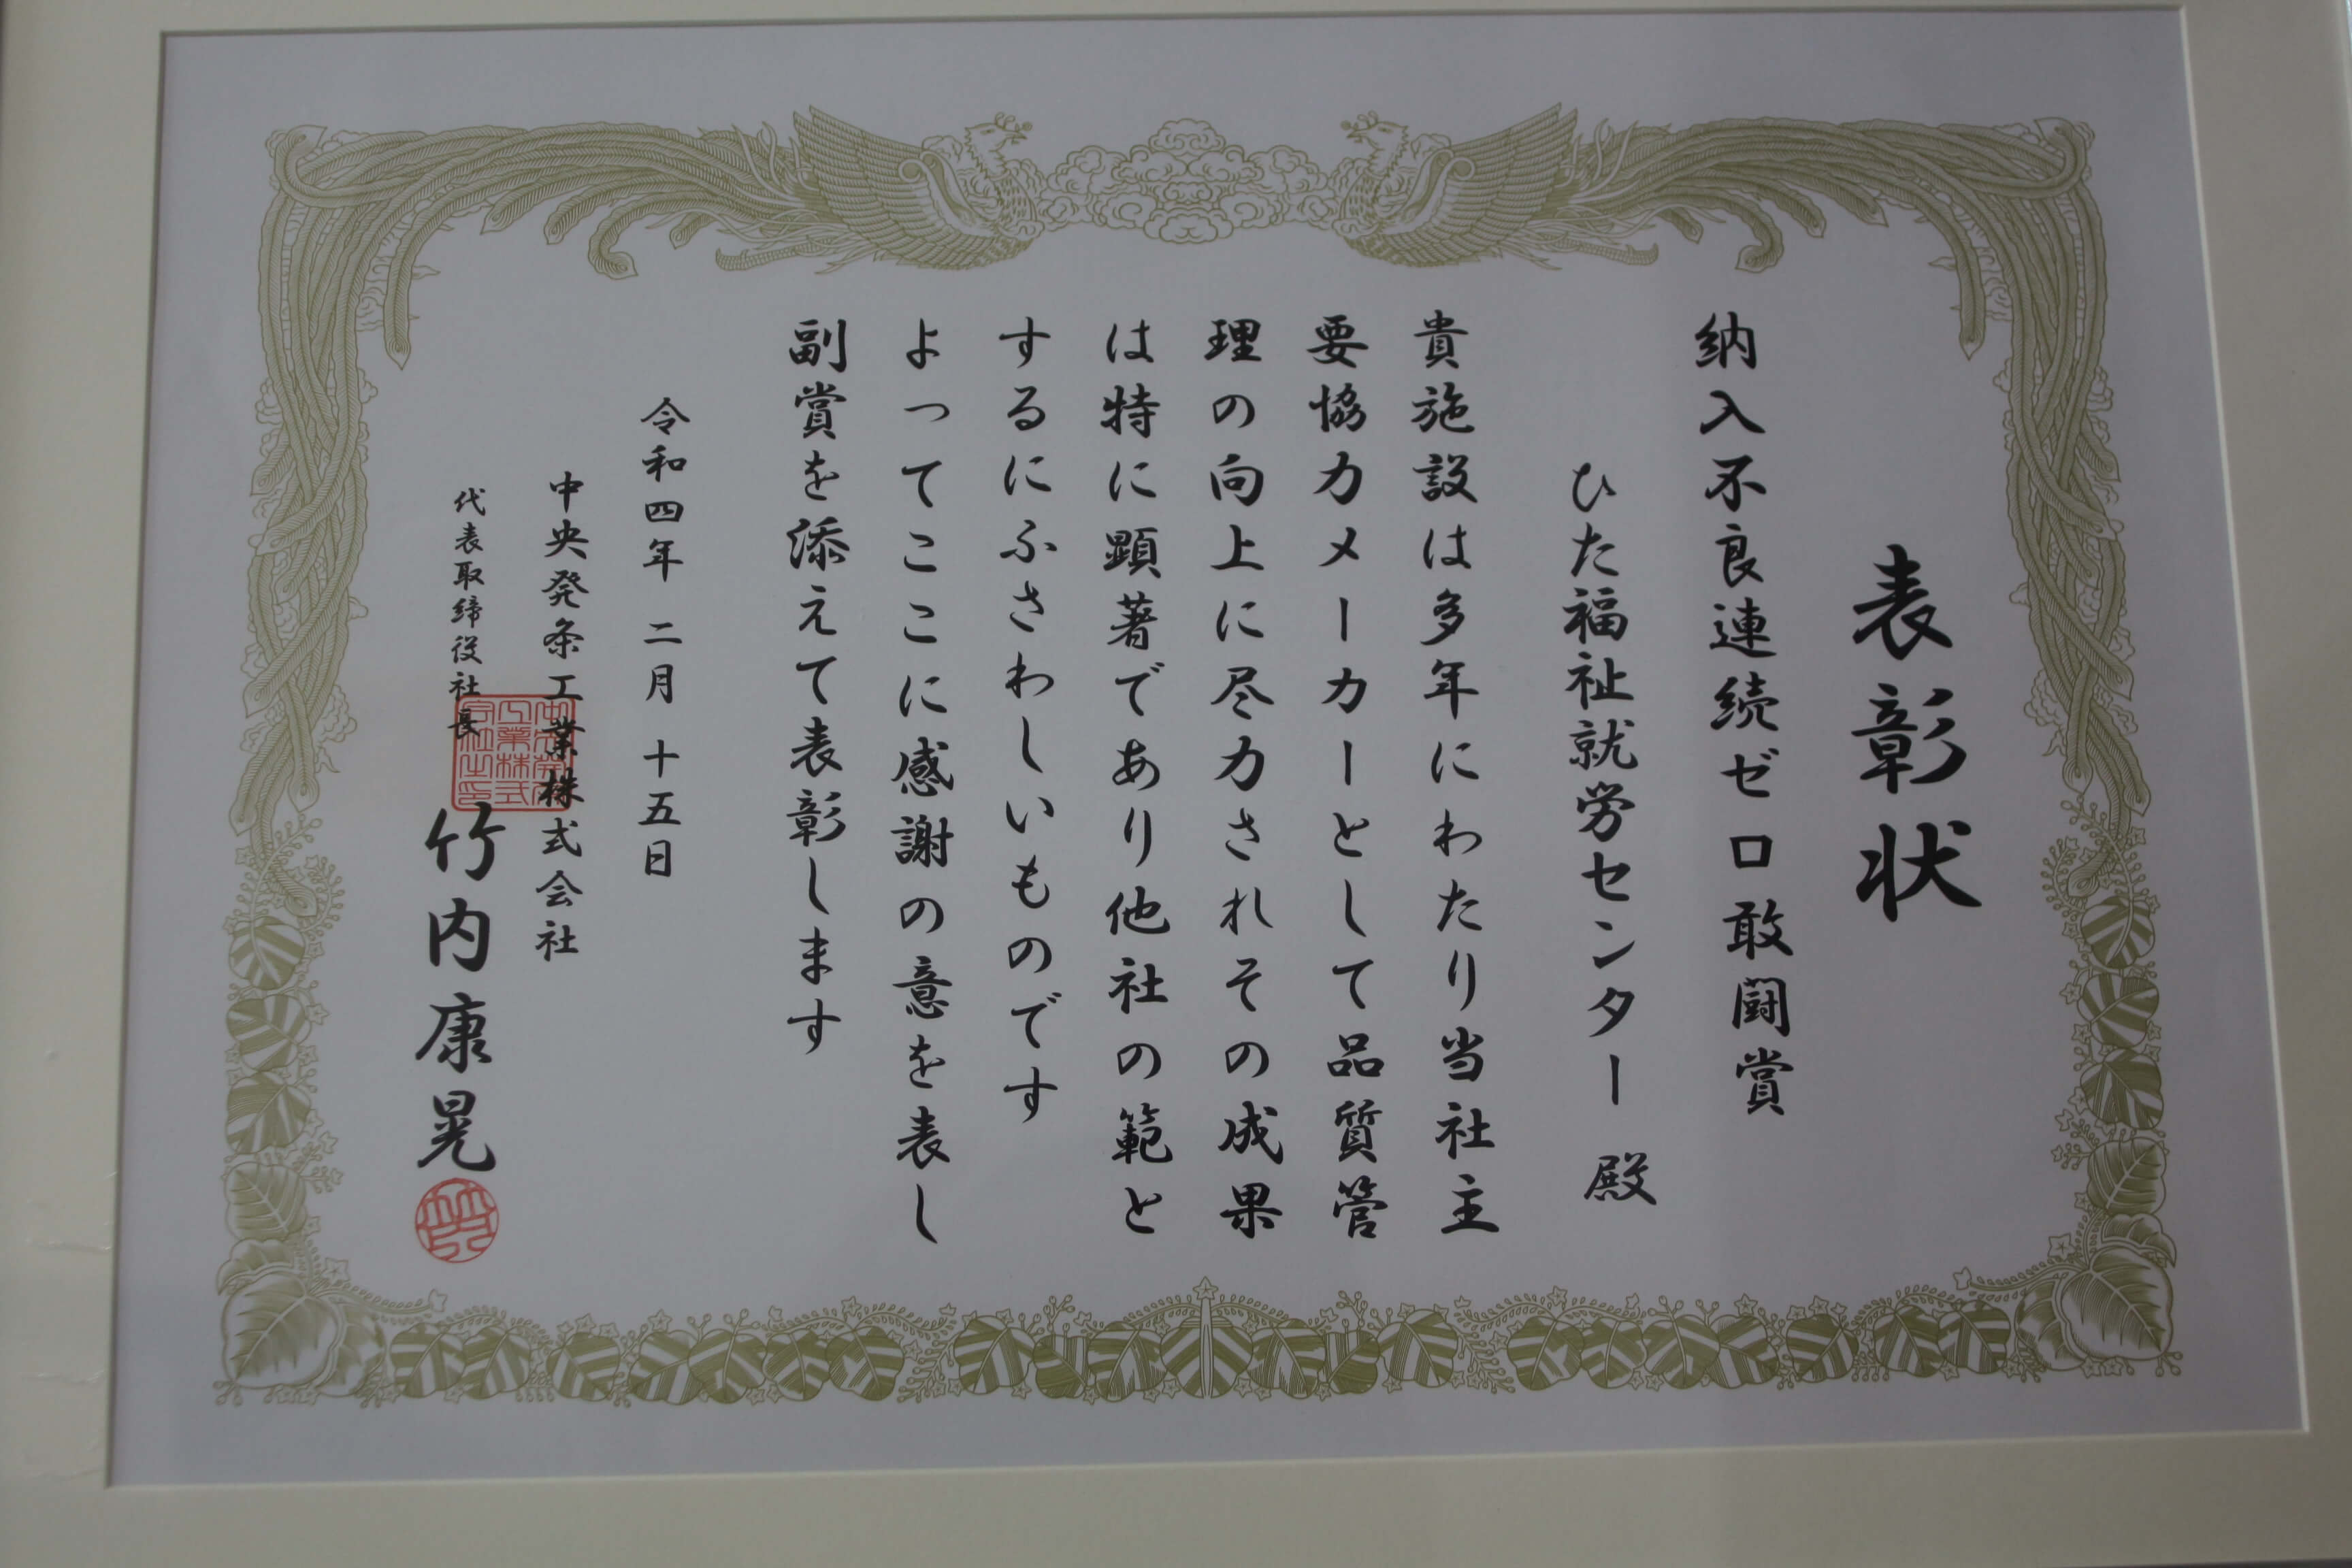 表彰状
納入不良連続ゼロ敢闘賞
ひた福祉就労センター 殿
貴施設は多年にわたり当社主
要協力メーカーとして品質管
理の向上に尽力されその成果
は特に顕著であり他社の範と
するにふさわしいものです
よってここに感謝の意を表し
副賞を添えて表彰します
令和四年 二月 十五日
中央発条工業株式会社
代表取締役社長 竹内康晃